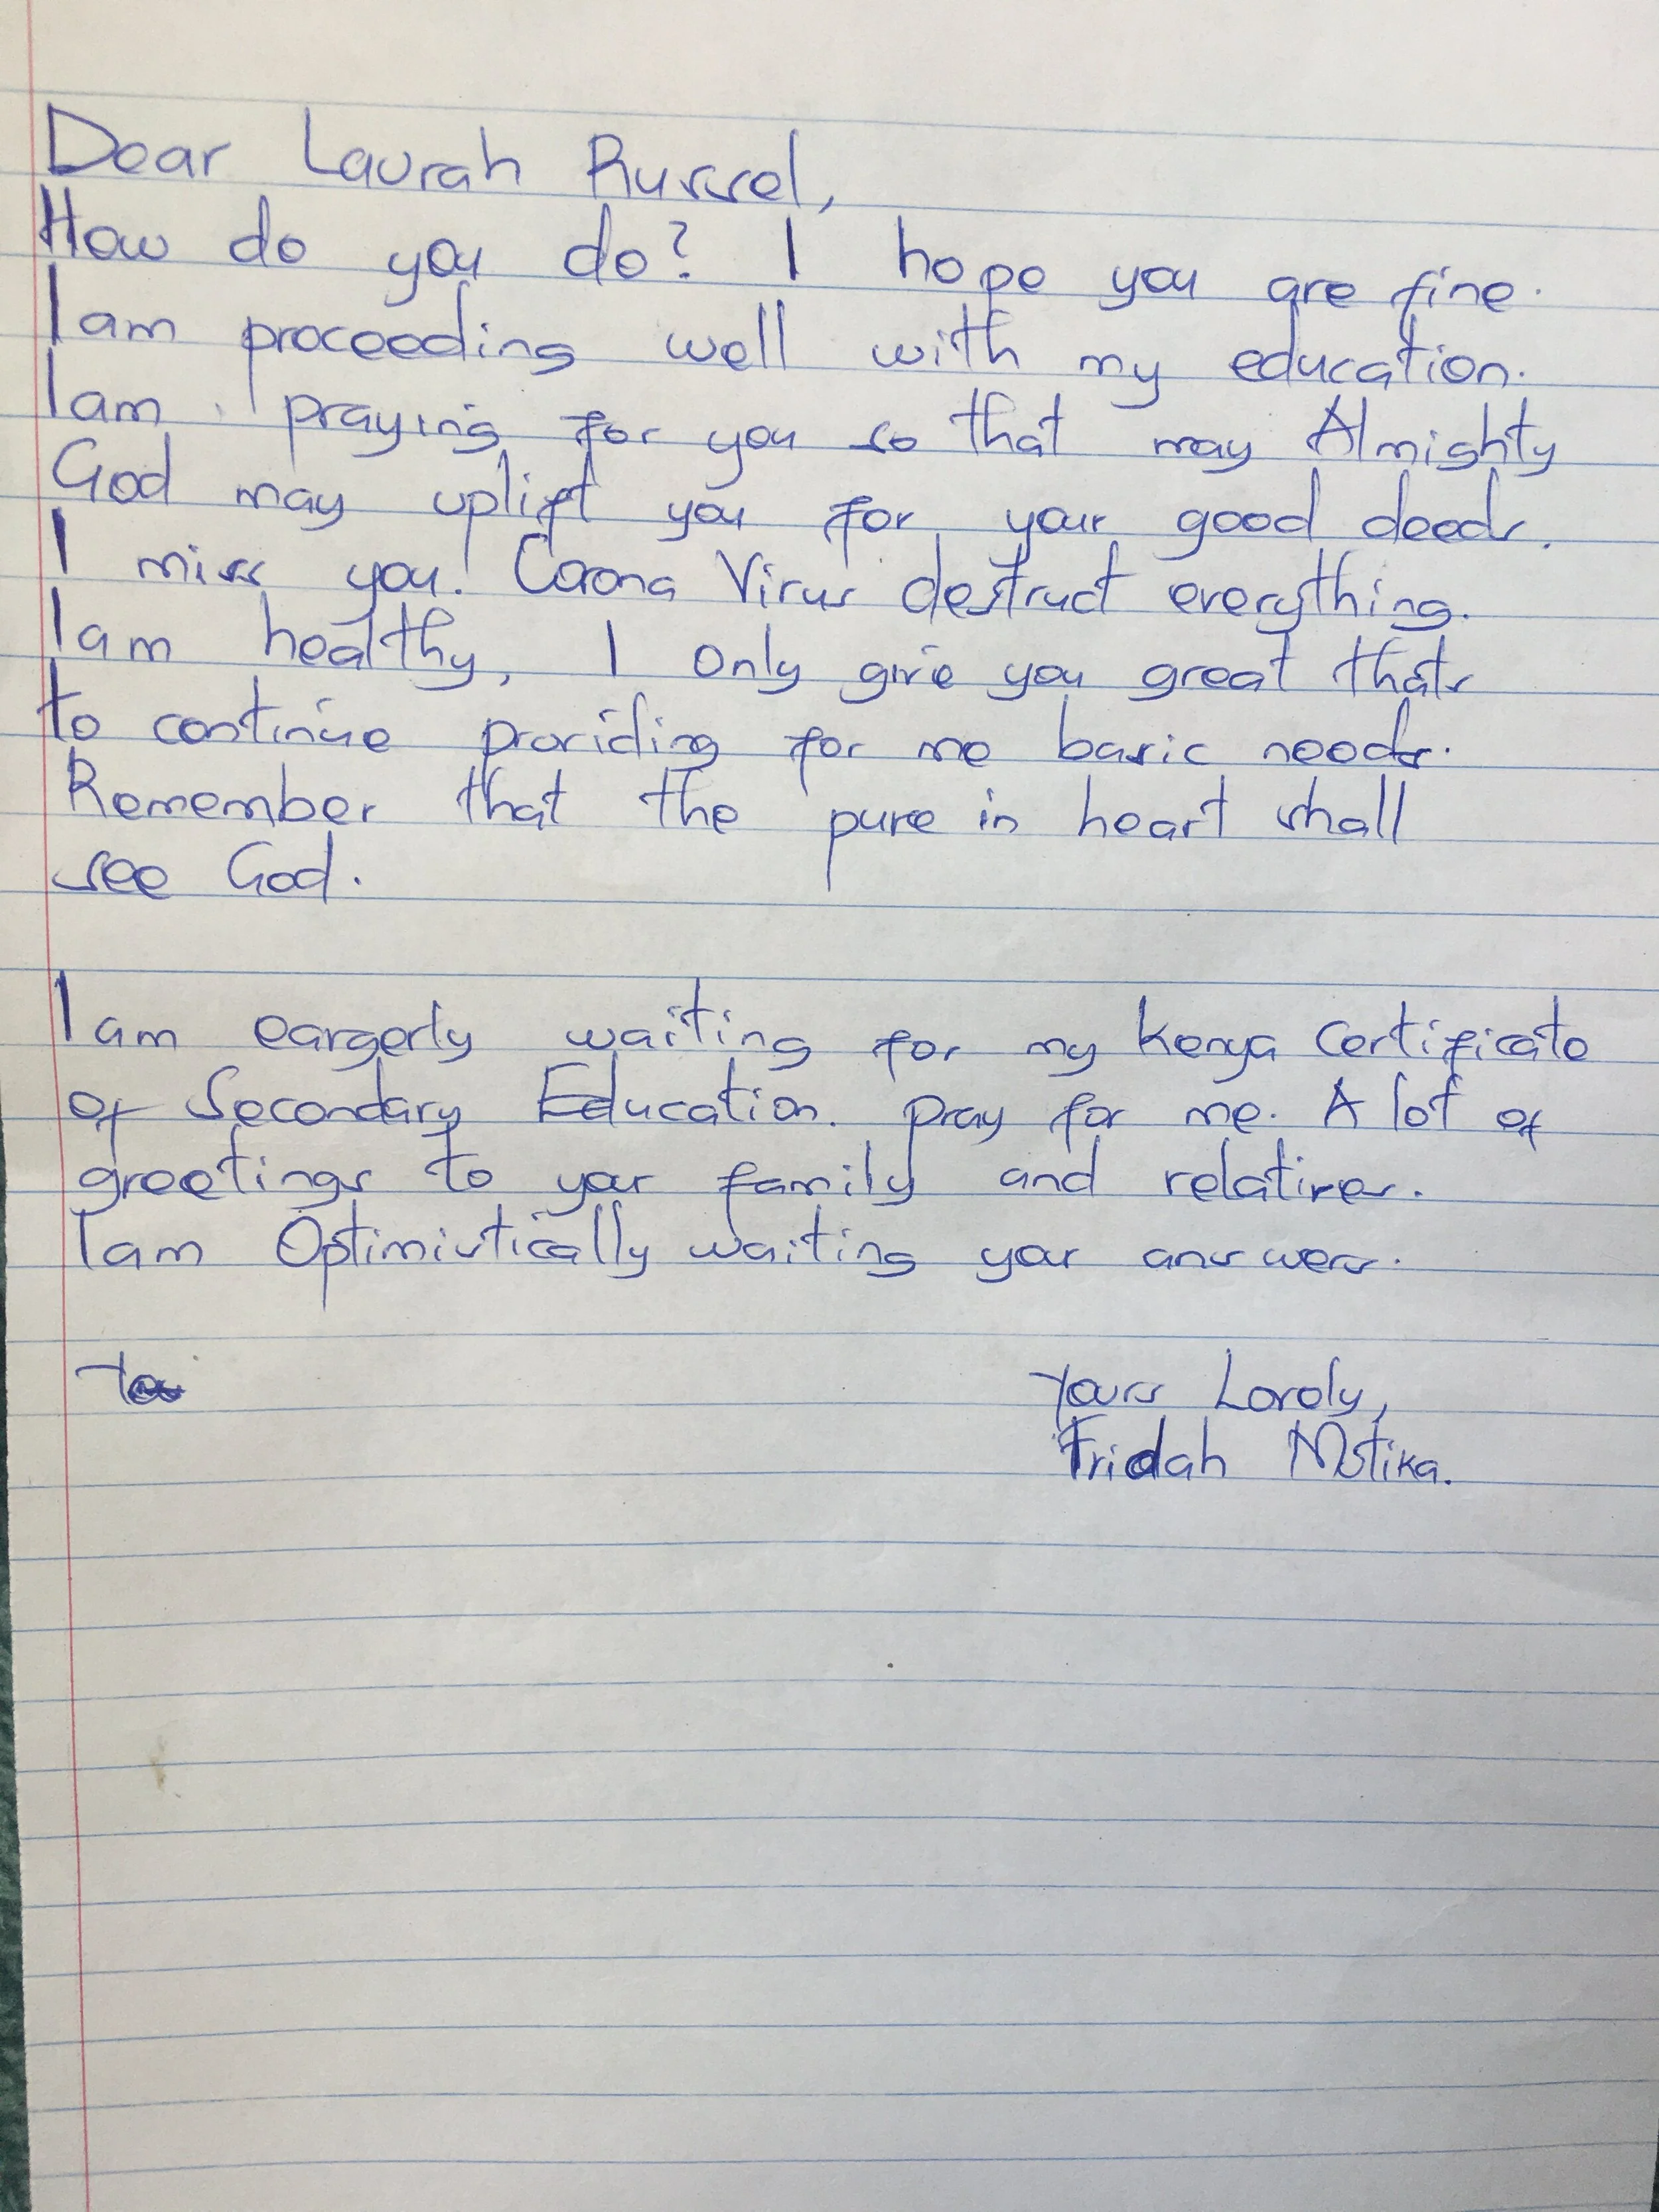 Dear Laurah Russel,
How do you do? I hope you are fine.
I am proceeding well with my education.
I am praying for you so that may Almighty
God may uplift you for your good deeds.
I miss you! Corona Virus destruct everything.
I am healthy, I only give you great thats
to continue providing for me basic needs.
Remember that the pure in heart shall
see God.
I am eargerly waiting for my Kenya Certificate
of Secondary Education. Pray for me. A lot of
greetings to your family and relatives.
I am Optimistically waiting your answers.
Yours Lovely,
Fridah Motika.